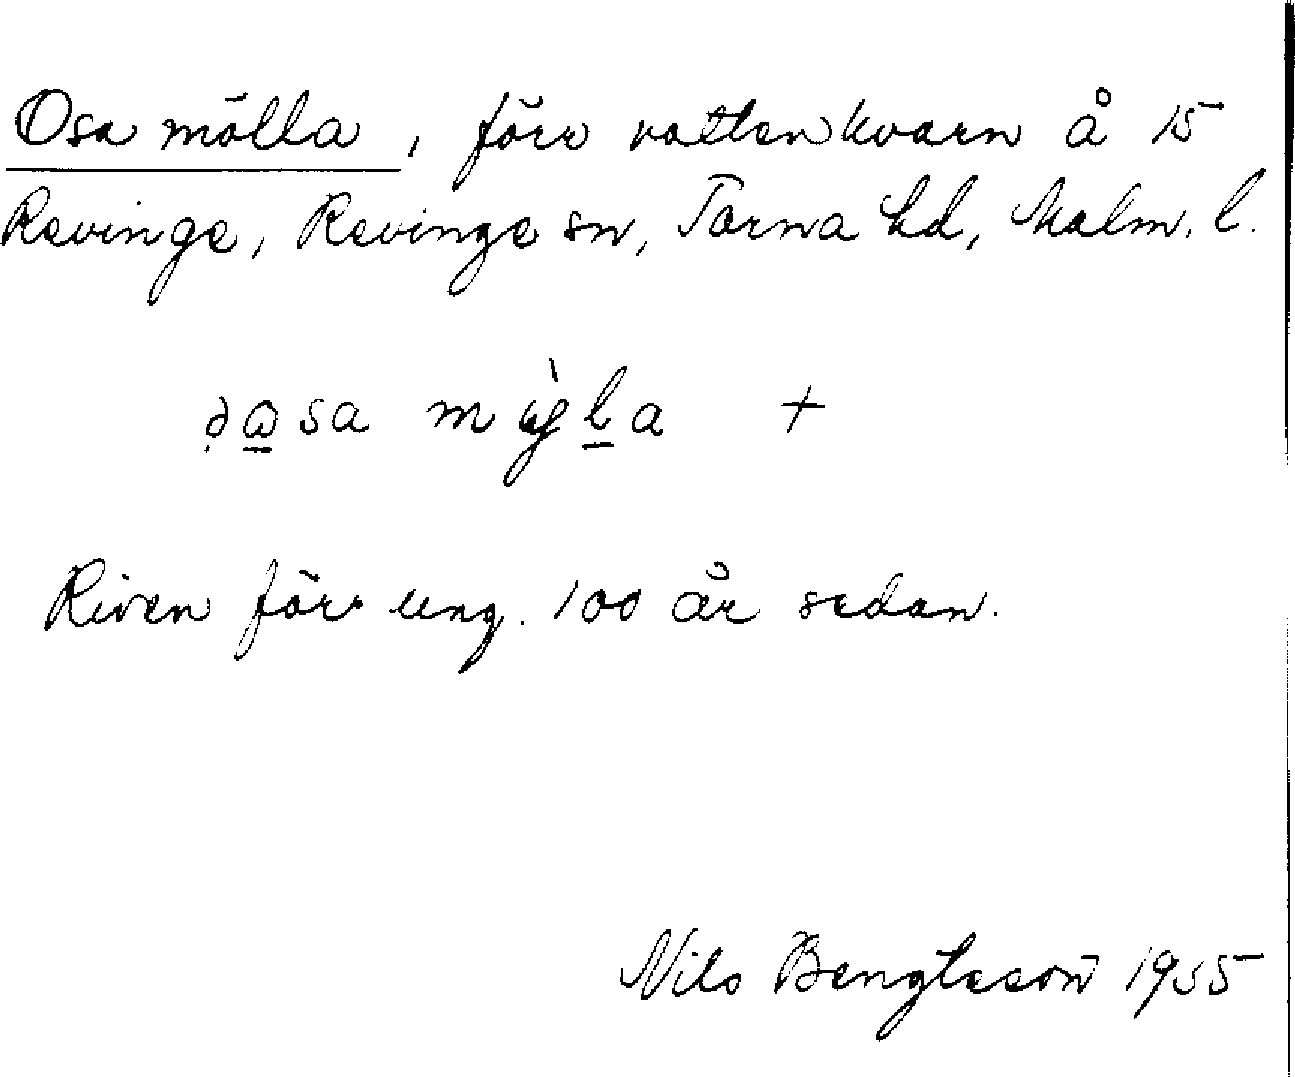 Osa mölla, förr vattenkvarn å 15
Revinge, Revinge sn, Torna hd, Malm. l.
sa +
Riven för ung. 100 år sedan.
Nils Bengtsson 1955